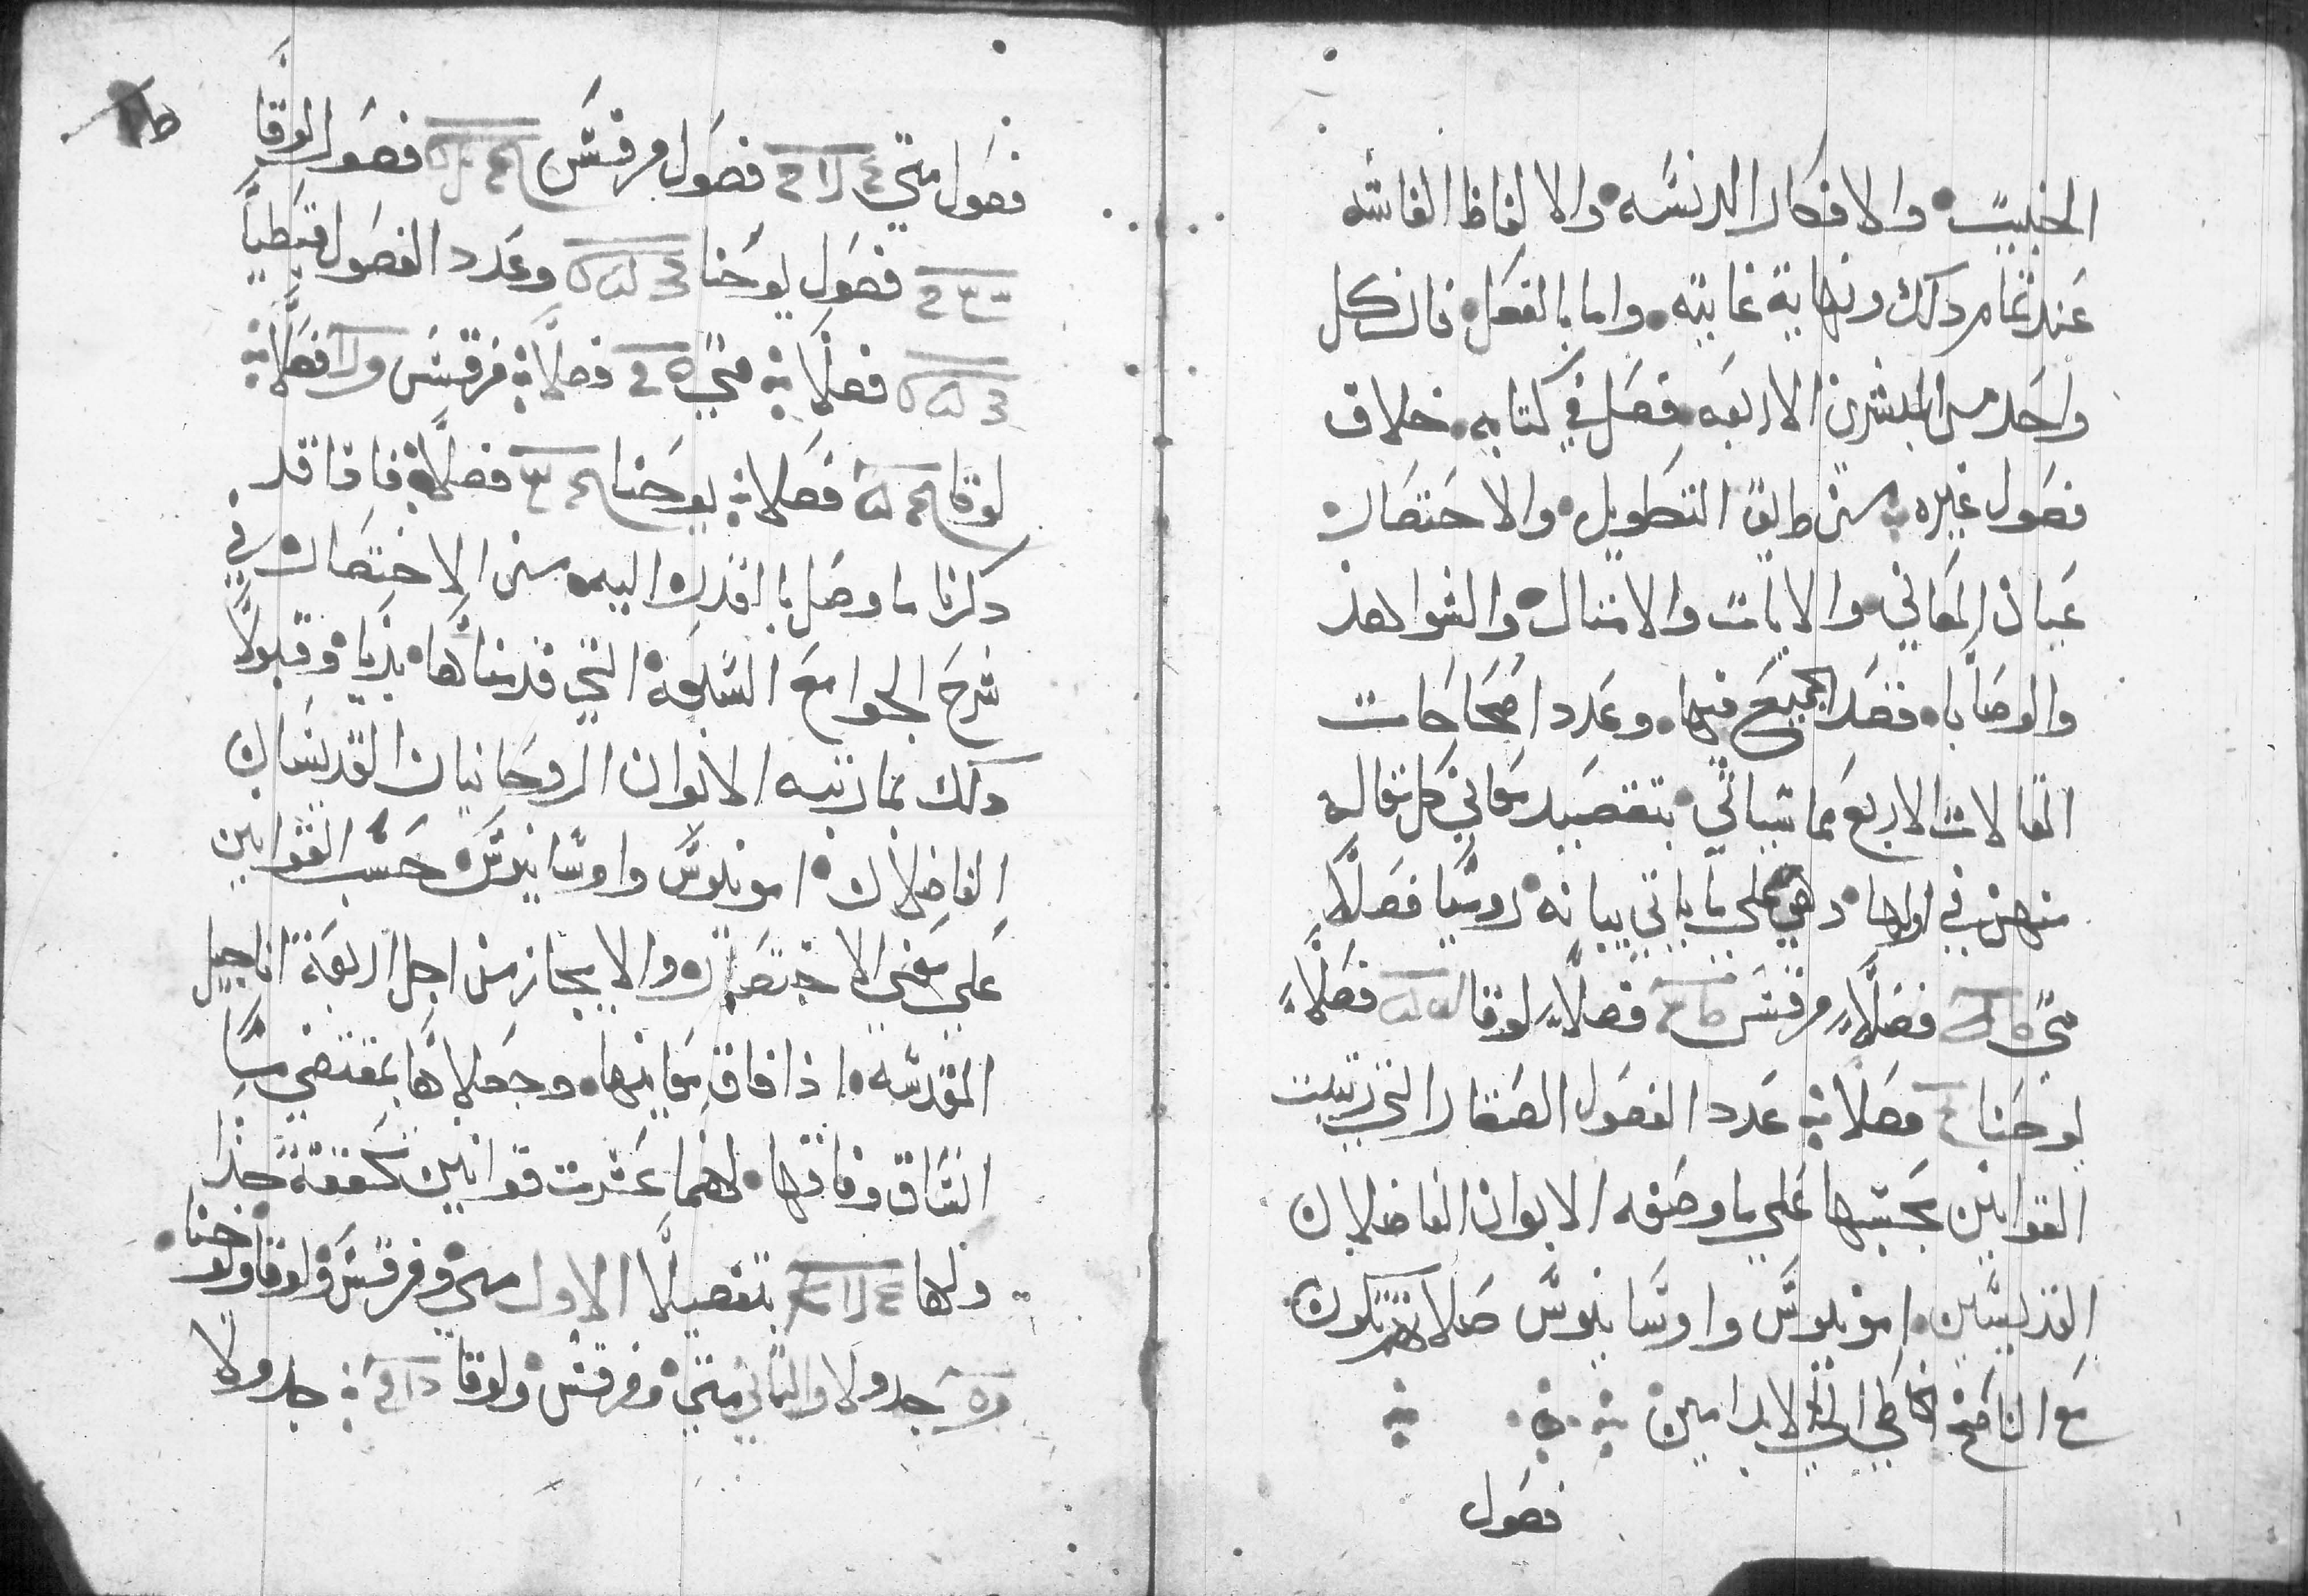 الخبيثه والافكار الدنسه والالفاظ الفاشه
عند تمام دلك ونهاية غايته واما بالفعل فان كل
واحد من المبشرين الاربعه فصل في كتابه خلاف
فصول غيره من طريق التطويل والاختصار
عبارة المعاني والايات والامثال والشواهد
والوصايا فقصد الجميع فيها وعدد اصحاحات
المقالات الاربع مما سياتي بتفصيد معاني كل مقاله
منهن في اولها وهي علي ما ياتي بيانه روميا فصلا
متي فصلا مرقس فصلا لوقا فصلا
يوحنا فصلا عدد الفصول الصغار التي رتبت
القوانين بحسبها علي ما وصفه الابوان الفاضلان
القديسين امونيوس واوسانيوس صلاتهم تكون
مع الناسخ الخاطي الي الابد امين
فصول
فصول متي فصول مرقس فصول لوقا
فصول يوحنا وعدد الفصول قبطيا
فصلا متي فصلا مرقس فصلا
لوقا فصلا يوحنا فصلا فاذا قد
دكرنا ما وصل بنا القدره اليه من الاختصار في
شرح الجوامع السبعة التي قدمناها بديا وقبولا
دلك بما رتبه الابوان الروحانيان القديسان
الفاضلان امونيوس واوسانيوس حسب القوانين
علي معني الاختصار والايجاز من اجل اربعة اناجيل
المقدسه اذا فاق معانيها وجعلاها بمقتضي
اتساق وفاقها لهما عشرت قوانين جدا
ولها بتفصيلا الاول متي ومرقس ولوقا ويوحنا
جدولا والثاني متي ومرقس ولوقا جدولا